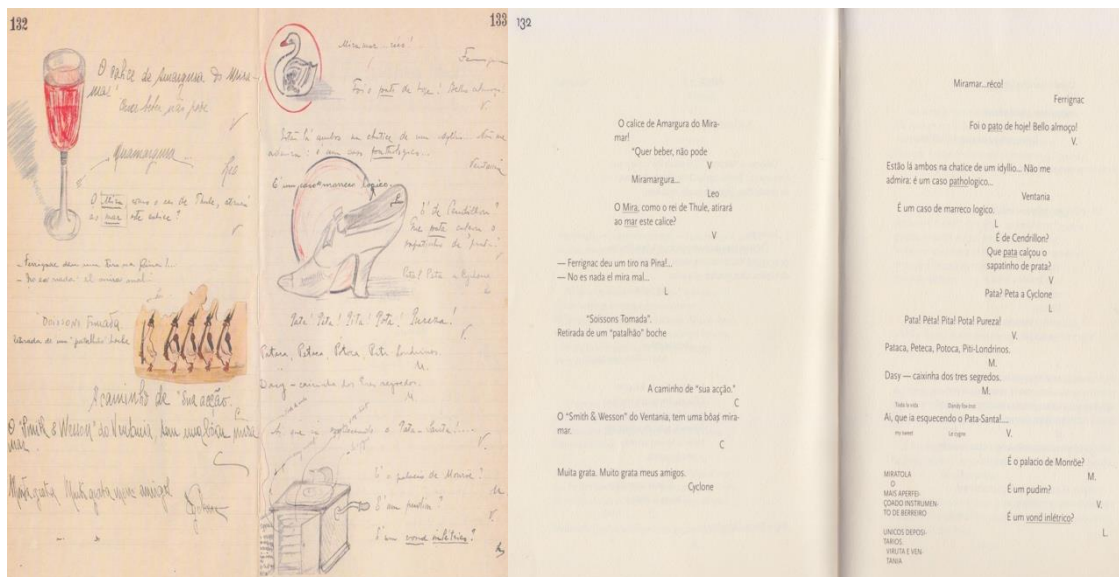 132
O calice de Amargura do Mira-
mar!
"Quer beber, não pode
V
Miramargura...
Leo
O Mira, como o rei de Thule, atirará
ao mar este calice?
V
— Ferrignac deu um tiro na Pina!...
— No es nada el mira mal...
"Soissons Tomada".
Retirada de um "patalhão" boche
A caminho de "sua acção.
C
O "Smith & Wesson" do Ventania, tem uma bôa mira
mar.
Muita grata Muito grata meus amigos
Cyclone
133
Miramar...réco!
Ferrignac
Foi o pato de hoje! Bello almoço!
V.
Estão lá ambos na chatice de um idyllio... Não me
admira: é um caso pathologico...
Ventania
É um caso marreco logico.
L
É de Cendrillon?
Que pata calçou o
sapatinho de "prata"?
V
Pata? Peta a Cyclone
L
Pata! Péta! Pita! Pota! Pureza!
V.
Pataca, Peteca, Potoca, Piti-Londrinos.
M.
Dasy — caixinha dos tres segredos.
M
Ai, que ia esquecendo o Pata-Santa!...
V.
É o palacio de Monroe?
M.
É um pudim?
V.
É um vond inlétrico?
132
O calice de Amargura do Mira-
mar!
"Quer beber, não pode
V
Miramargura...
Leo
O Mira, como o rei de Thule, atirará
ao mar este calice?
V
— Ferrignac deu um tiro na Pina!...
— No es nada el mira mal...
L
"Soissons Tomada".
Retirada de um "patalhão" boche
A caminho de "sua acção."
C
O "Smith & Wesson" do Ventania, tem uma bôaş mira-
mar.
C
Muita grata. Muito grata meus amigos.
Cyclone
Miramar...réco!
Ferrignac
Foi o pato de hoje! Bello almoço!
V.
Estão lá ambos na chatice de um idyllio... Não me
admira: é um caso pathologico...
Ventania
É um caso de marreco logico.
L
É de Cendrillon?
Que pata calçou o
sapatinho de prata?
V
Pata? Peta a Cyclone
L
Pata! Péta! Pita! Pota! Pureza!
V.
Pataca, Peteca, Potoca, Piti-Londrinos.
M.
Dasy — caixinha dos tres segredos.
M.
Ai, que ia esquecendo o Pata-Santa!....
V.
É o palacio de Monrõe?
M.
É um pudim?
V.
É um vond inlétrico?
L.
MIRATOLA
O
MAIS APERFEI-
ÇOADO INSTRUMEN-
TO DE BERREIRO
UNICOS DEPOSI-
TARIOS
VIRUTA E VEN-
TANIA